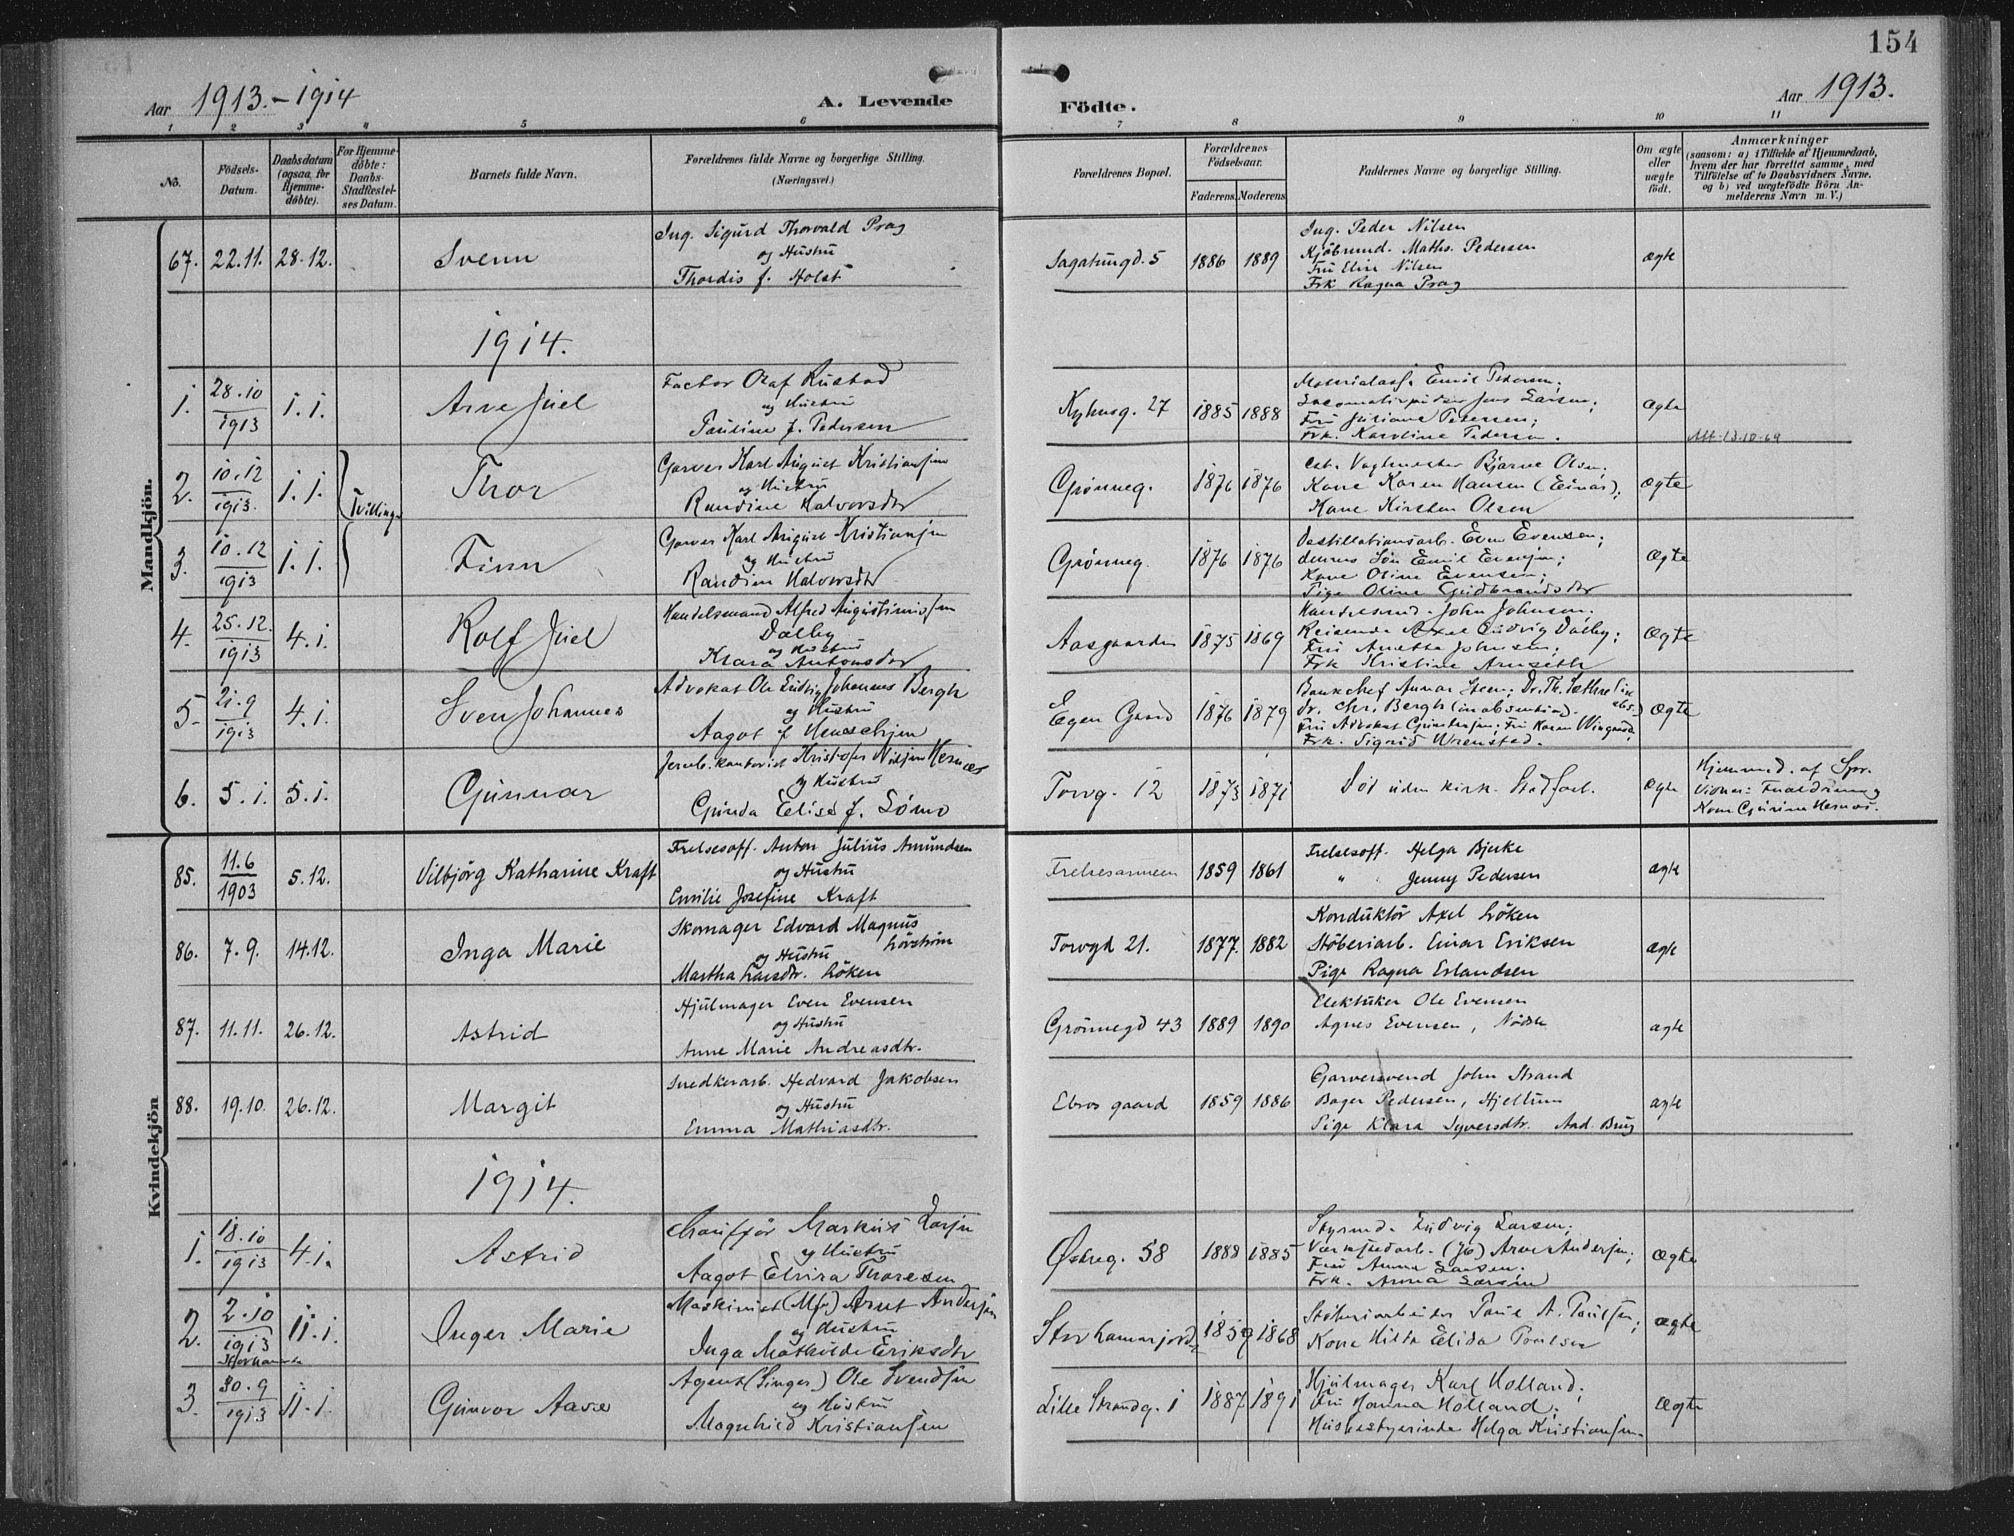 154
Aar 1913.-1914
A. Levende
Födte.
Aar 1913.
1 2 3 4 5 6 7 8 9 10 11
No.
Födsels-
Datum.
Daabsdatum
(ogsaa for
Hjemme-
döbte).
For Hjemme-
döbte:
Daabs-
Stadfæstel-
ses Datum.
Barnets fulde Navn.
Forældrenes fulde Navne og borgerlige Stilling.
(Næringsvei.)
Forældrenes Bopæl.
Forældrenes
Födselsaar.
Faderens. Moderens.
Faddernes Navne og borgerlige Stilling.
Om ægte
eller
uægte
födt.
Anmærkninger
(saasom: a) i Tilfælde af Hjemmedaab,
hvem der har forrettet samme, med
Tilföielse af to Daabsvidners Navne.
og b) ved uægtefödte Börn An-
melderens Navn m. V.)
Mandkjön.
67. 22.11. 28.12. Svenn
Ing. Sigurd Thorvald Prag
og Hustru
Thordis f. Holst
Sagatungd. 5 1886 1889
Ing. Peder Nilsen
Kjöbmd. Maths. Pedersen
Fru Elise Nilsen
Frk Ragna Prag
ægte
1914.
1. 28.10 1913 1.1. Arve Juel
Factor Olaf Rustad
og Hustru
Pauline f. Pedersen
Kyhusg. 27 1885 1888
Emil Pedersen;
Jens Larsen;
Fru Juliane Petersen;
Frk. Karoline Pedersen.
Ægte
Att. 13-10-69
2. 10.12 1913. 1.1. Tvillinger Thor
Garver Karl August Kristiansen
og Hustru
Randine Halvorsdtr
Grönneg. 1876 1876
Vagtmester Bjarne Olsen;
Kone Karen Hansen (Einar);
Kone Kirsten Olsen
Ægte
3. 10.12 1913 1.1. Finn
Garver Karl August Kristiansen
og Hustru
Randine Halvorsdtr
Grönneg. 1876 1876
Destillationsarb. Even Evensen;
dennes Sön Emil Evensen;
Kone Oline Evensen;
Pige Oline Gudbrandsdtr
Ægte
4. 25.12. 1913 4.1. Rolf Juel
Handelsmand Alfred Augustinussen
Dalby
og Hustru
Klara Antonsdtr
Aasgaarden 1875 1869
Handelsmd. John Johnsen;
Reisende Axel Ludvig Dalby;
Fru Anetta Johnsen;
Frk Kristine Arneseth
Ægte
5. 21.9 1913 4.1. Sven Johannes
Advokat Ole Ludvig Johannes Bergh
og Hustru
Aagot f.
Egen Gaard 1876 1879
Bankchef Gunnar Steen; Dr. Th.
Dr. Chr. Bergh (in absentia).
Fru Advokat Gundersen; Fru Karen Wingaard,
Frk. Sigrid Wrensted.
Ægte
6. 5.1. 5.1. Gunnar
Jernb. kontorist Kristofer Nilsen Hernæs
og Hustru
Gunda Elise f. Lömo
Torvg. 12 1873 1871
Död uden kirk. Stadfæst.
Ægte
Hjemmed. af Spr.
Vidner: Forældrene og
Kone Gurine Hernæs.
Kvindekjön
85. 11.6 1903 5.12. Vilbjörg Katharine Kraft
Frelsesoff. Anton Julius Amundsen
og Hustru
Emilie Josefine Kraft
Frelsesarmeen 1859 1861
Frelsesoff. Helga Bjerke
" Jenny Pedersen
ægte
86. 7.9. 14.12. Inga Marie
Skomager Edvard Magnus
Lövström
og Hustru
Martha Larsdtr. Löken
Torvgd 21. 1877. 1882
Konduktör Axel Löken
Stöberiarb. Einar Eriksen
Pige Ragna Erlandsen
ægte
87. 11.11. 26.12. Astrid
Hjulmager Even Evensen
og Hustru
Anne Marie Andreasdtr.
Grönnegd 43 1889 1890
Elektriker Ole Evensen
Agnes Evensen,
ægte
88. 19.10. 26.12. Margit
Snedkerarb. Hedvard Jakobsen
og Hustru
Emma Mathiasdtr.
Ebros gaard 1859 1886
Garversvend John Strand
Bager Pedersen, Hjellum
Pige Klara Syversdtr. Aad. Brug
ægte
1914.
1. 18.10 1913 4.1. Astrid
Chaufför Markus Larsen
og Hustru
Aagot Elvira Thoresen
Østreg. 58 1888 1885
Styrmd. Ludvig Larsen;
Værkstedarb. (Jb) Arve Andersen;
Fru Anna Larsen.
Frk. Anna Larsen
Ægte
2. 2.10 1913 11.1. Inger Marie
Storhamar
Maskinist (Mfr) Arnt Andersen
og Hustru
Inga Mathilde Eriksdtr
Storhamarjordet 1859 1868
Stöberiarbeider Paul A. Paulsen;
Kone Hilda Elida Paulsen
Ægte
3. 30.9 1913 11.1. Gunvor Aase
Agent (Singer) Ole Svendsen
og Hustru
Magnhild Kristiansen
Lille Strandg. 1 1887 1891
Hjulmager Karl Holland;
Fru Hanna Holland;
Husbestyrerinde Helga Kristiansen.
Ægte